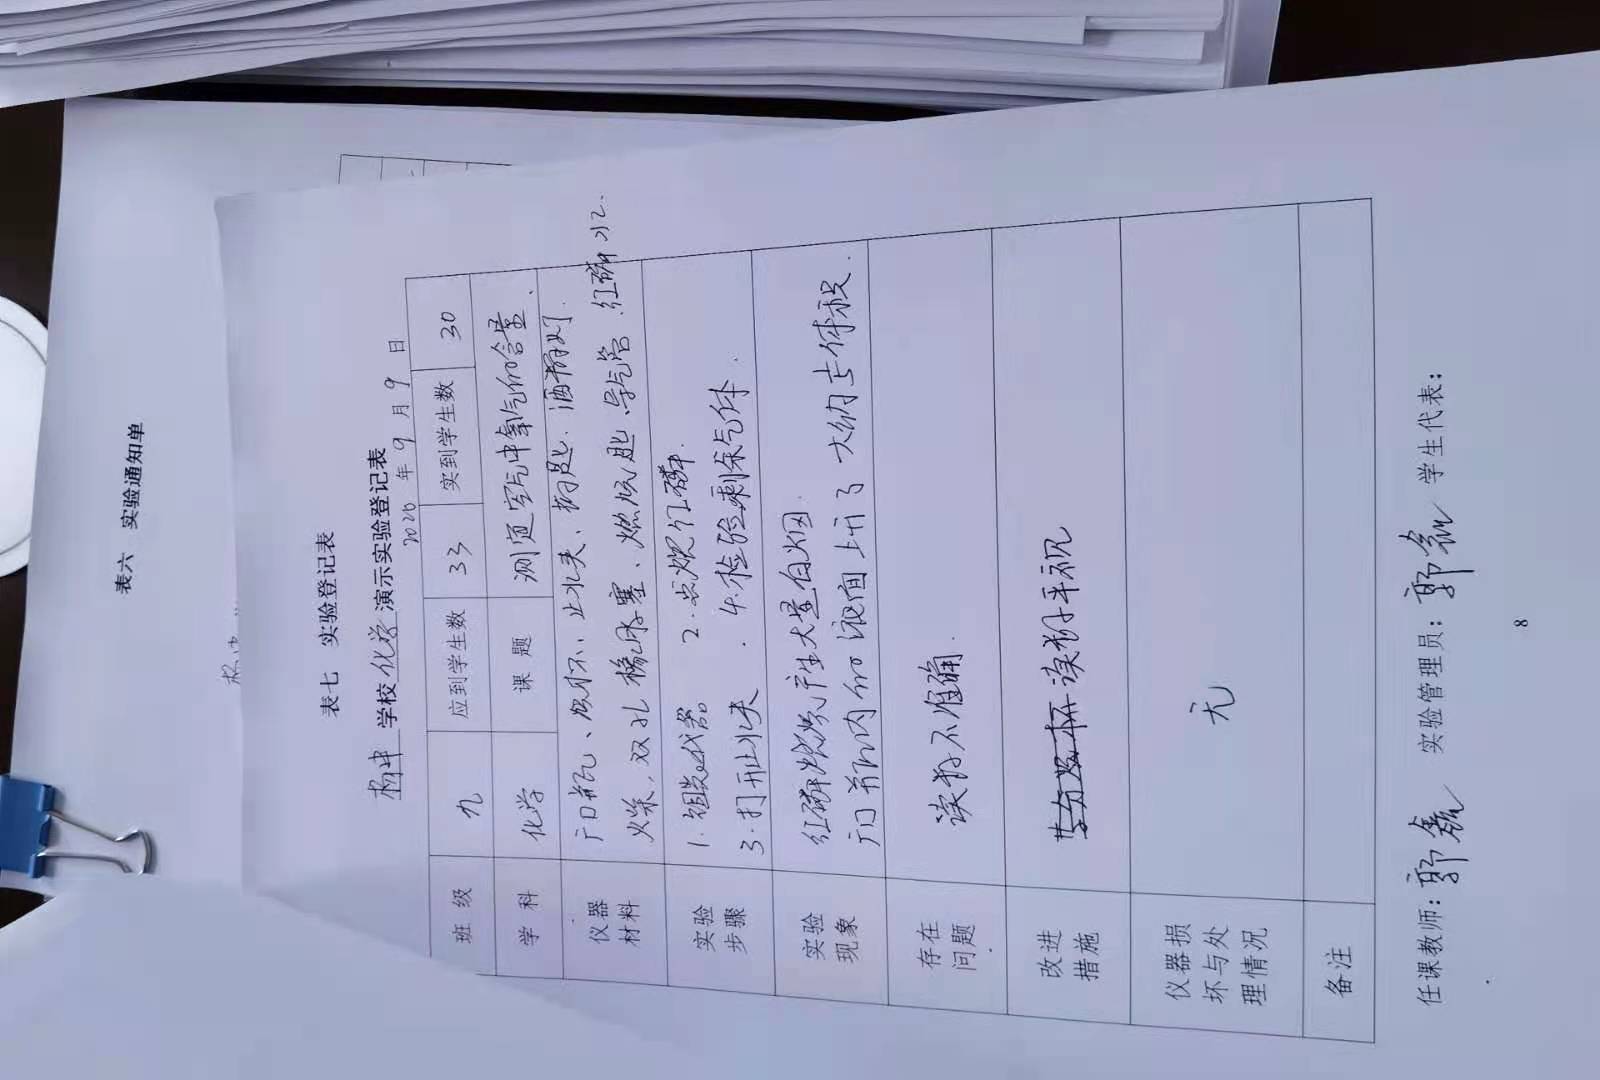 表六 实验通知单
表七 实验登记表
杨中 学校 化学 演示实验登记表
2020 年 9 月 9 日
班 级 九 应到学生数 33 实到学生数 30
学 科 化学 课 题 测定空气中氧气的含量.
仪器材料 广口瓶、烧杯、止水夹、药匙.酒精灯.
火柴,双孔橡胶塞、燃烧匙、导气管.红磷 水.
实验步骤 1.组装仪器。 2.点燃红磷.
3.打开止水夹. 4.检验剩余气体.
实验现象 红磷燃烧产生大量白烟
广口瓶内的液面上升了 大约占体积.
存在问题. 读数不准确.
改进措施 读数平视
仪器损坏与处理情况 无
备注
任课教师: 郭鑫 实验管理员: 郭鑫 学生代表:
8